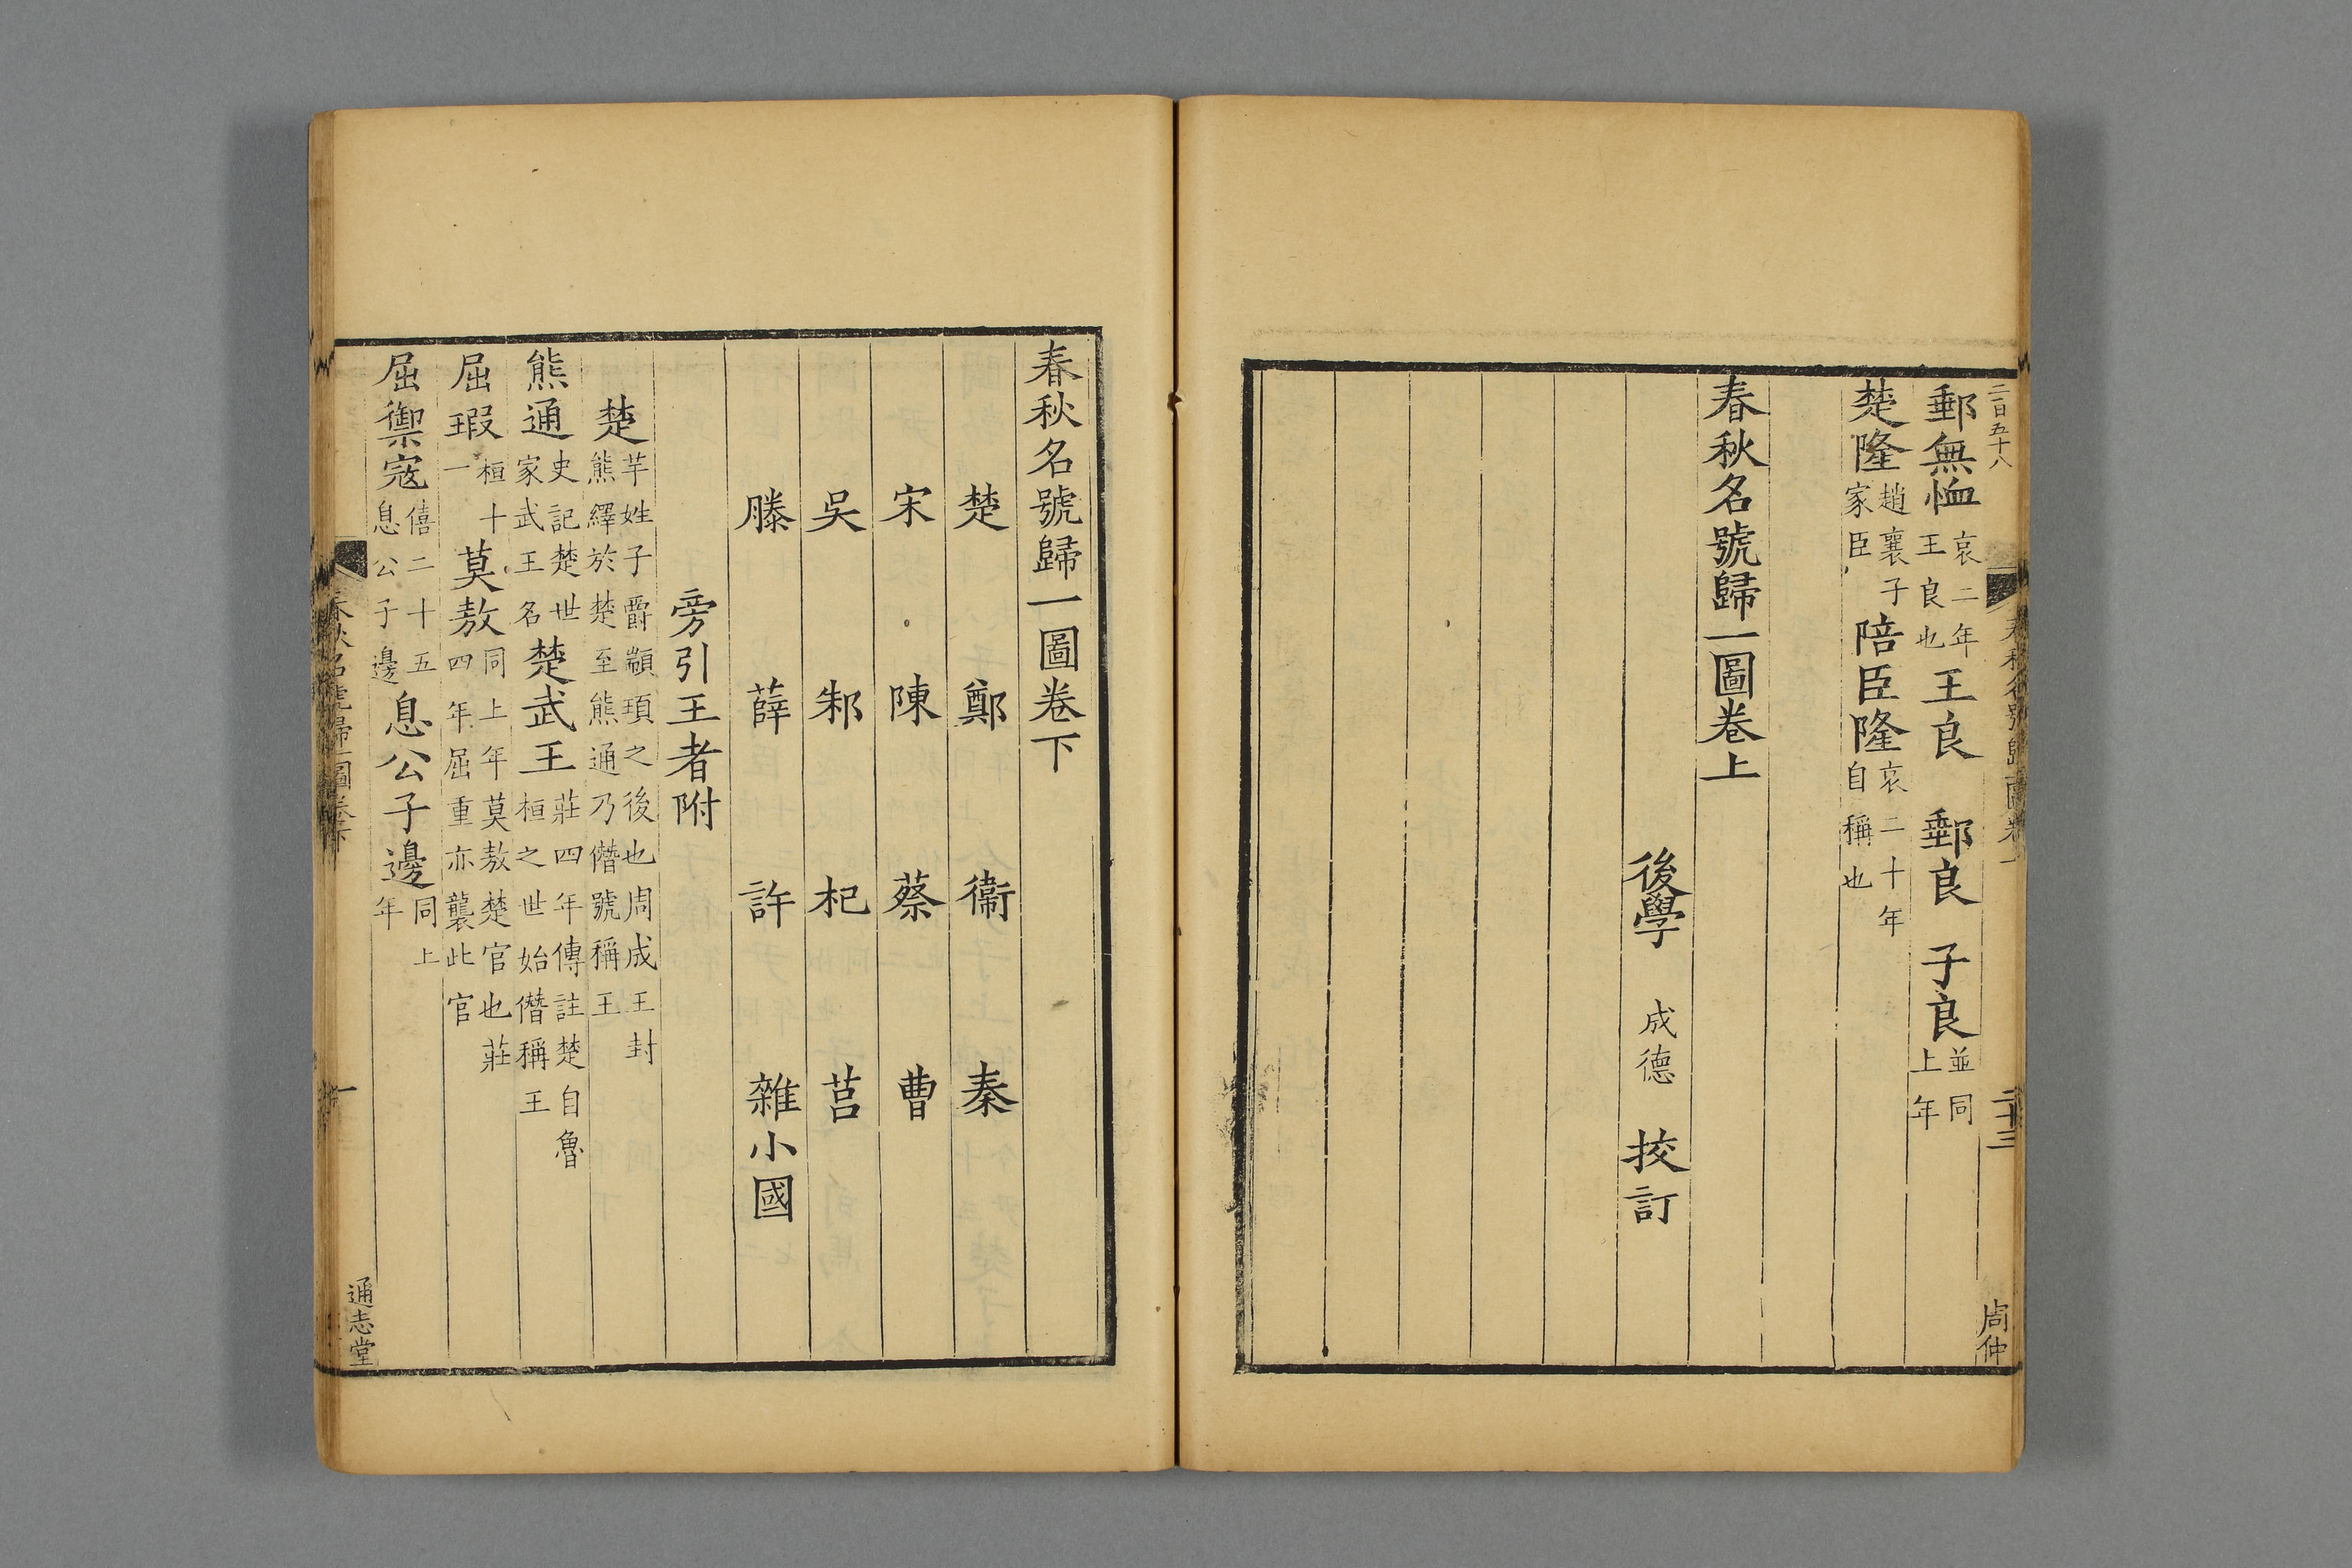 二百五十八
春秋名號歸一圖卷上
二十三
周仲
郵無恤哀二年王良也王良 郵良 子良並同上年
楚隆趙襄子家臣陪臣隆哀二十年自稱也
春秋名號歸一圖卷上
後學 成德 挍訂
春秋名號歸一圖卷下
楚 鄭 衞 秦
宋 陳 蔡 曹
吳 邾 杞 莒
滕 薛 許 雜小國
旁引王者附
楚芊姓子爵顓頊之後也周成王封熊繹於楚至熊通乃僭號稱王
熊通史記楚世家武王名楚武王莊四年傳註楚自魯桓之世始僭稱王
屈瑕桓十一莫敖同上年莫敖楚官也莊四年屈重亦襲此官
屈禦寇僖二十五息公子邊息公子邊同上年
春秋名號歸一圖卷下
一
通志堂